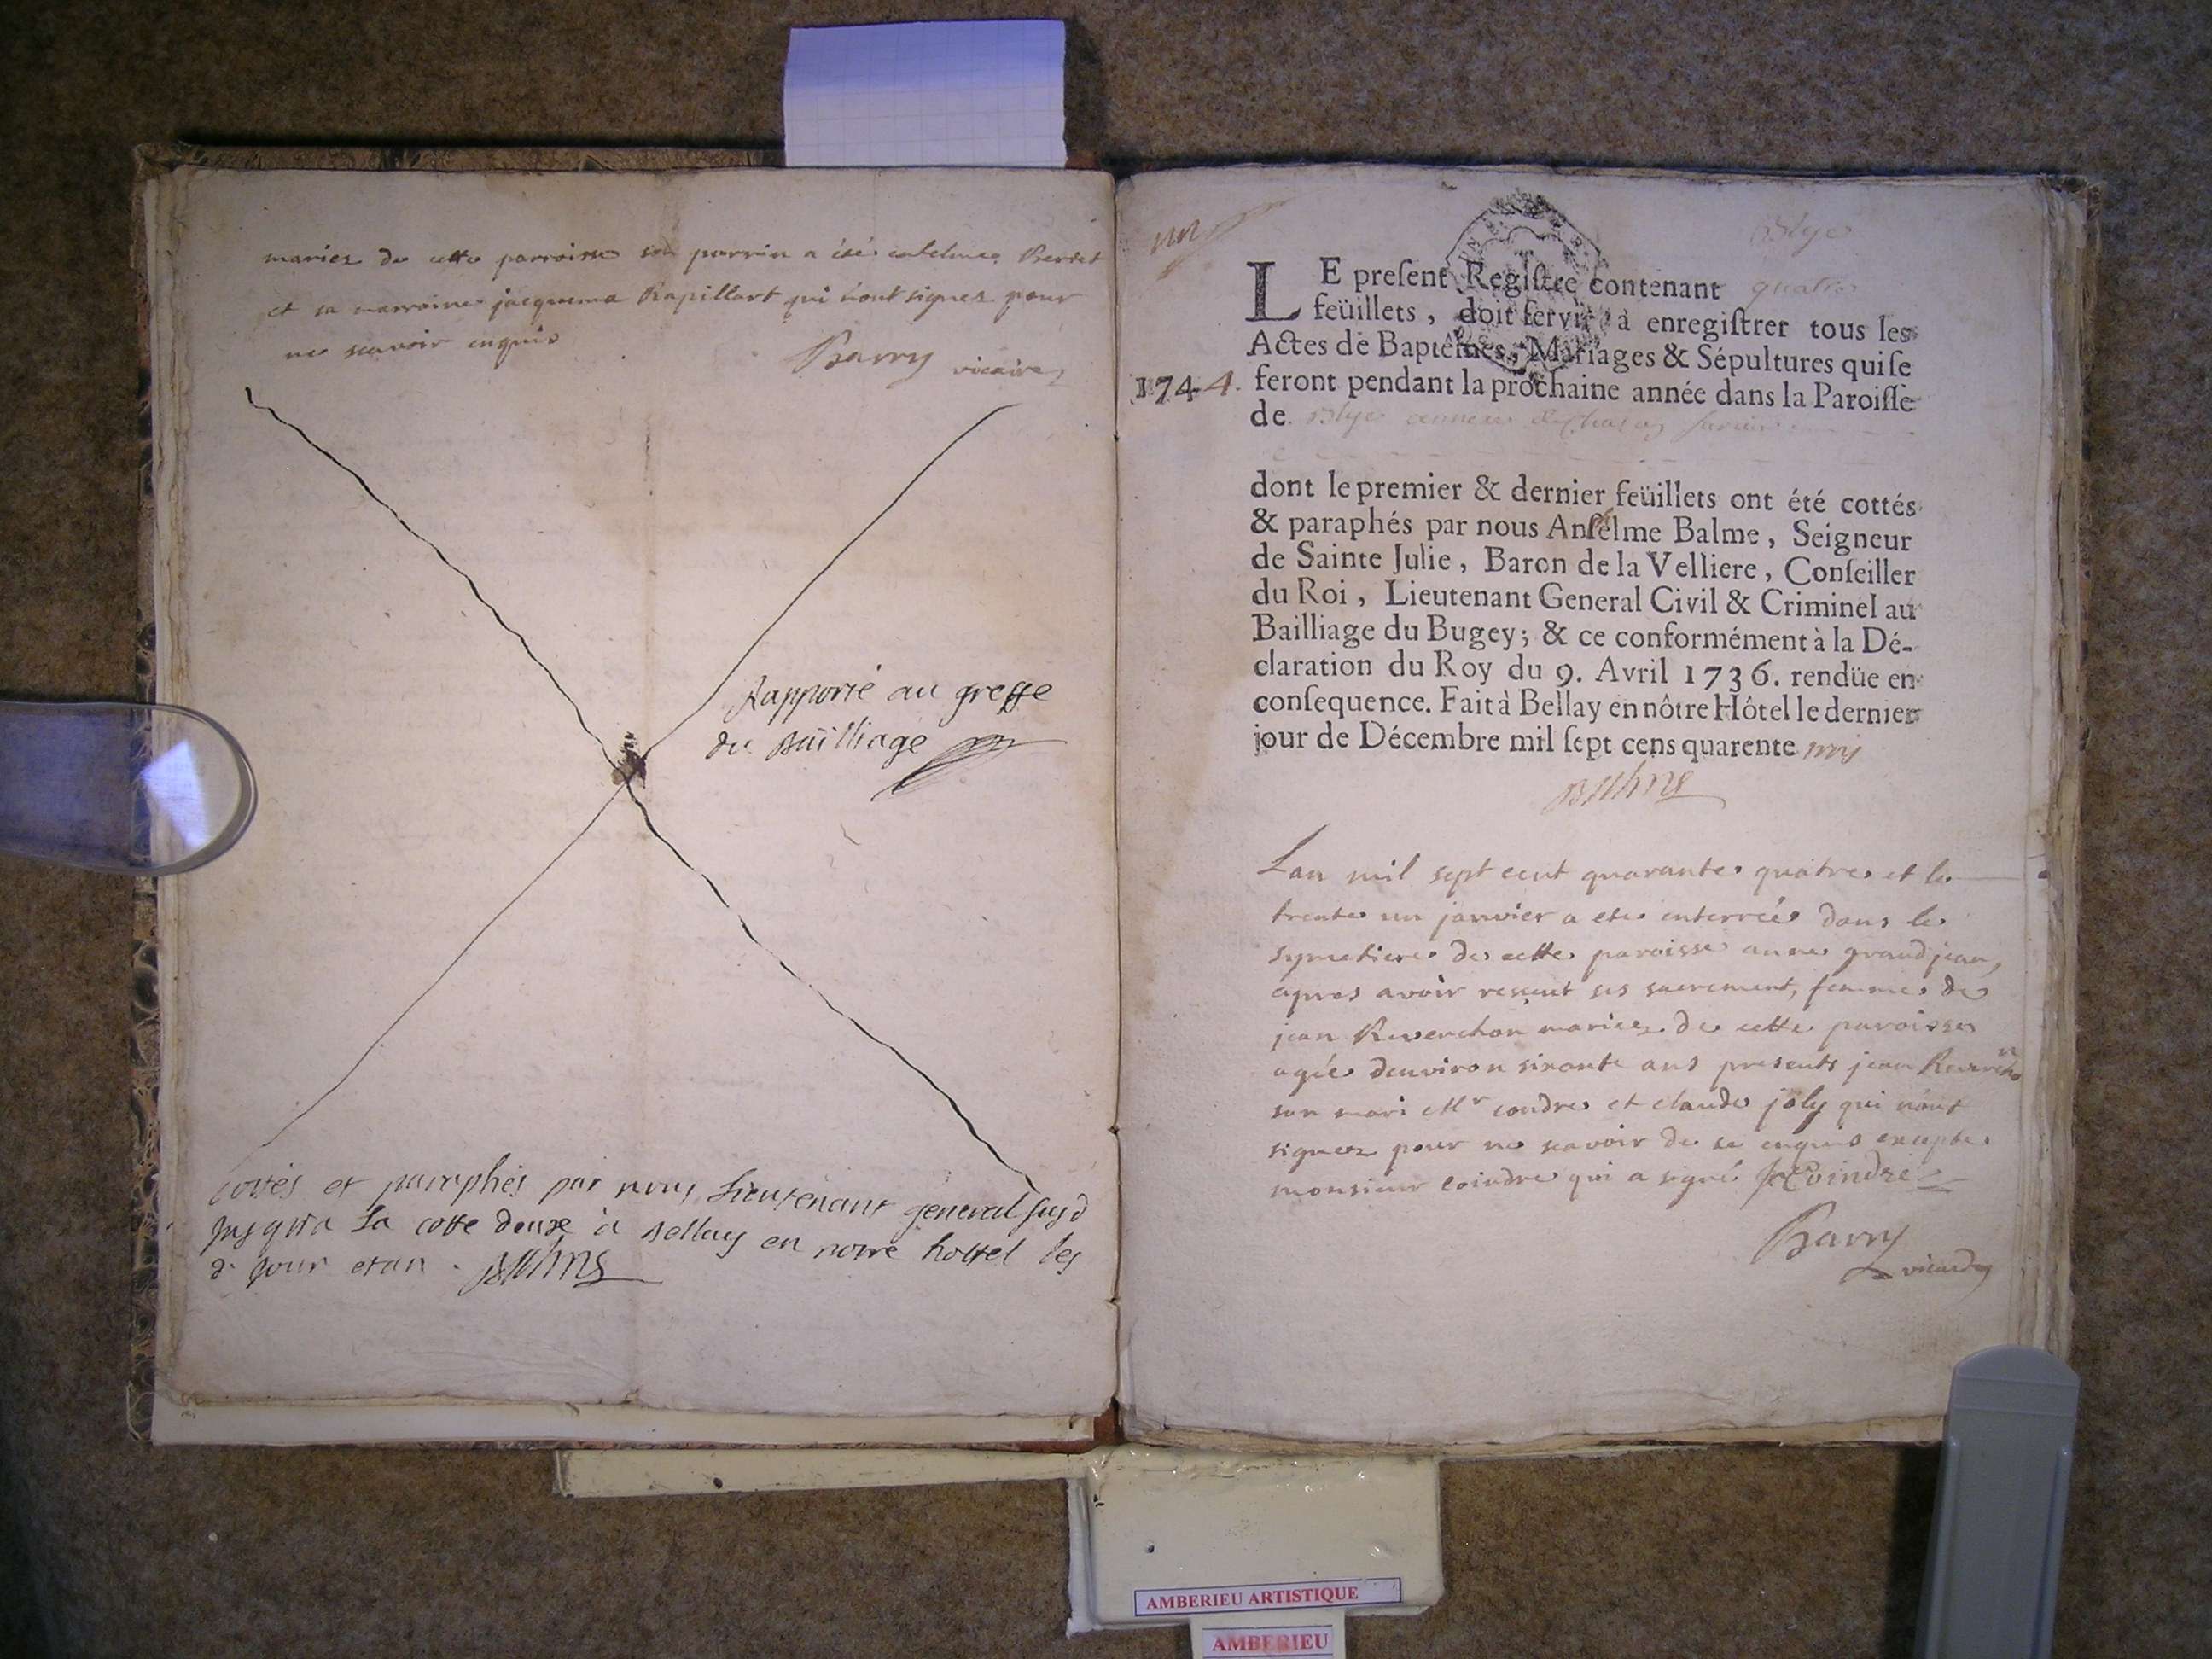 mariez de cette parroisse son parrin a été Berset
et sa marraine jacquema Rapillart qui nont signez pour
ne scavoir enquis
Barry vicaire
Rapporté au greffe
du Bailliage
Cottés et paraphés par nous Lieutenant general susd
Jusqu'a la cotte deuxe à Bellay en notre hostel les
d. jour et an. Balme
un
Blye
LE preſent Regiſtre contenant quatre
feüillets, doit ſervir à enregiſtrer tous les
Actes de Baptêmes, Mariages & Sépultures qui ſe
1744. feront pendant la prochaine année dans la Paroiſſe
de Blye annexe de Chazey
dont le premier & dernier feüillets ont été cottés
& paraphés par nous Anſelme Balme, Seigneur
de Sainte Julie, Baron de la Velliere, Conſeiller
du Roi, Lieutenant General Civil & Criminel au
Bailliage du Bugey; & ce conformément à la Dé-
claration du Roy du 9. Avril 1736. rendüe en
conſequence. Fait à Bellay en nôtre Hôtel le dernier
jour de Décembre mil ſept cens quarente trois
Balme
Lan mil sept cent quarante quatre et le
trente un janvier a ete enterrée dans le
symetiere de cette paroisse anne grandjean,
apres avoir reseut ses sacrement, femme de
jean Reverchon mariez de cette paroisse
agée denviron sixante ans presents jean Reverchon
son mari Mr coindre et claude joly qui nont
signez pour ne scavoir de ce enquis excepte
monsieur coindre qui a signé Coindre
Barry
AMBERIEU ARTISTIQUE
AMBERIEU